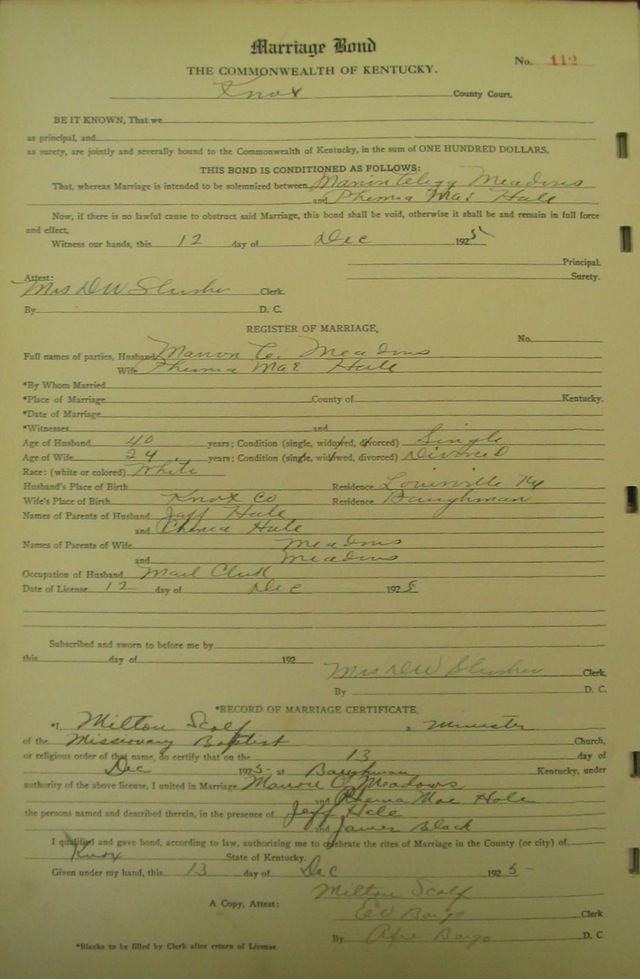 Marriage Bond
No. 112
THE COMMONWEALTH OF KENTUCKY.
Knox County Court.
BE IT KNOWN, That we
as principal, and
as surety, are jointly and severally bound to the Commonwealth of Kentucky, in the sum of ONE HUNDRED DOLLARS.
THIS BOND IS CONDITIONED AS FOLLOWS:
That, whereas Marriage is intended to be solemnized between Marion Meadows
and Phemia Mae Hale
Now, if there is no lawful cause to obstruct said Marriage, this bond shall be void, otherwise it shall be and remain in full force
and effect.
Witness our hands, this 12 day of Dec 1925
Principal.
Surety.
Attest:
Mrs D W Slusher Clerk.
By D. C.
REGISTER OF MARRIAGE.
No.
Full names of parties, Husband Marion C. Meadows
Wife Phemia Mae Hale
*By Whom Married
*Place of Marriage County of Kentucky.
*Date of Marriage
*Witnesses and
Age of Husband 40 years; Condition (single, widowed, divorced) Single
Age of Wife 24 years; Condition (single, widowed, divorced) Divorced
Race: (white or colored) White
Husband's Place of Birth Residence Louisville Ky
Wife's Place of Birth Knox Co Residence Baughman
Names of Parents of Husband Jeff Hale
and Hale
Names of Parents of Wife Meadows
and Meadows
Occupation of Husband Mail Clerk
Date of License 12 day of Dec 1925
Subscribed and sworn to before me by
this day of 192
Mrs D W Slusher Clerk.
By D. C.
*RECORD OF MARRIAGE CERTIFICATE.
*I, Milton Scalf, Minister
of the Missionary Baptist Church,
or religious order of that name, do certify that on the 13 day of
Dec 1925 at Baughman Kentucky, under
authority of the above license, I united in Marriage C. Meadows
and Phemia Mae Hale
the persons named and described therein, in the presence of Jeff Hale
and James Black
I qualified and gave bond, according to law, authorizing me to celebrate the rites of Marriage in the County (or city) of
Knox State of Kentucky.
Given under my hand, this 13 day of Dec 1925
Milton Scalf
A Copy, Attest: Bargo Clerk
By Bargo D. C
*Blanks to be filled by Clerk after return of License.